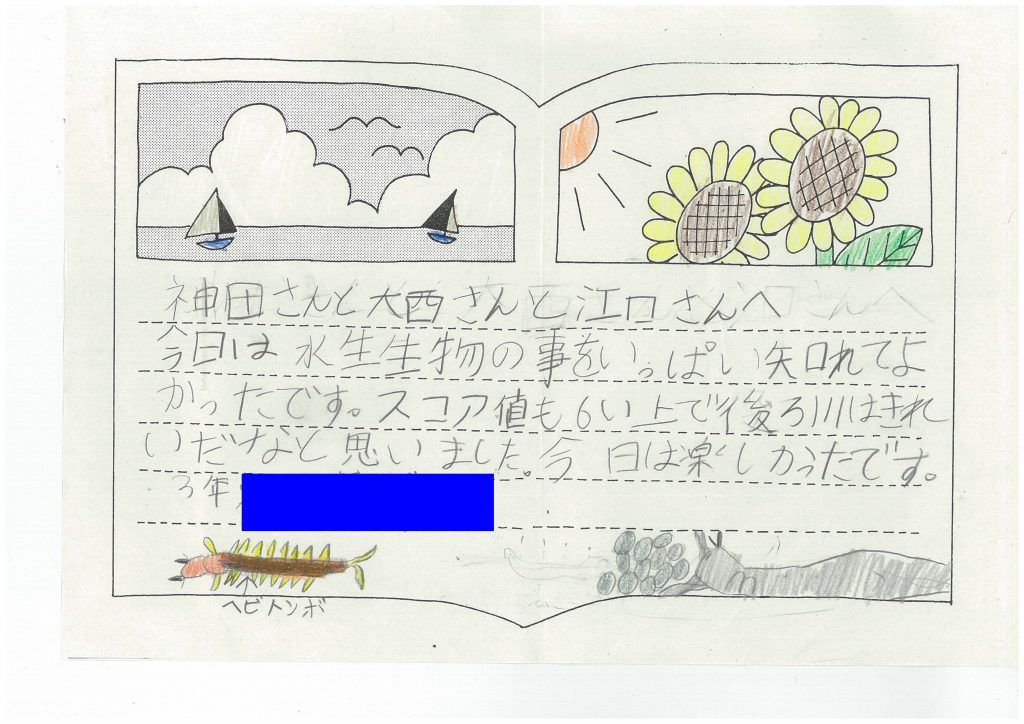 神田さんと大西さんと江口さんへ
今日は水生生物の事をいっぱい知れてよ
かったです。スコア値も6い上で後ろ川はきれ
いだなと思いました。今日は楽しかったです。
3年
ヘビトンボ